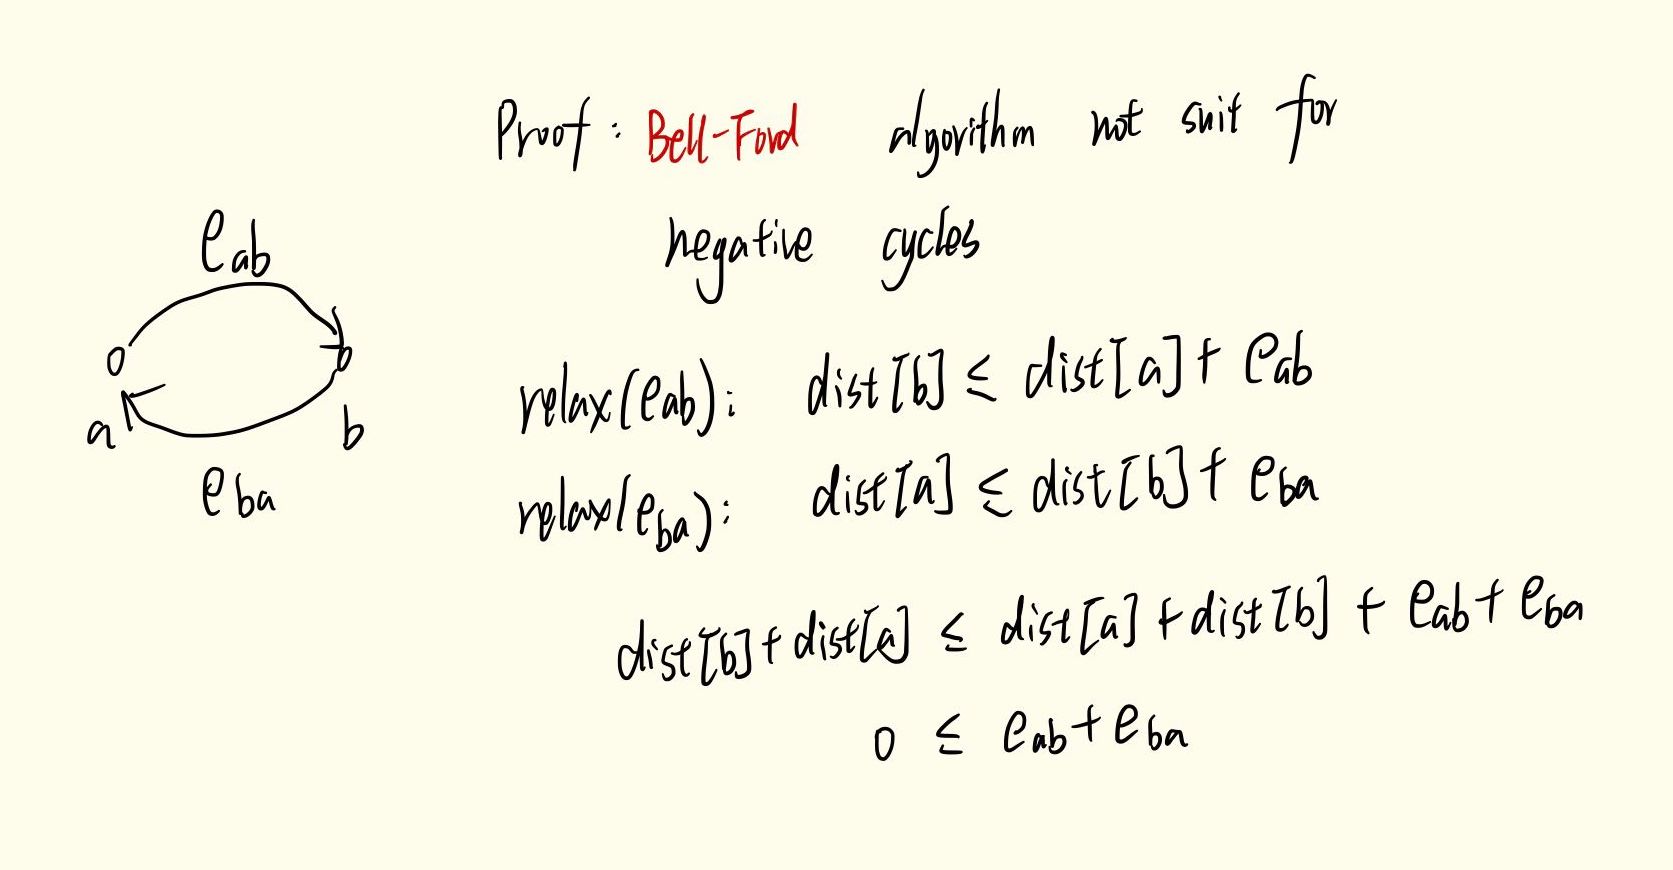 Proof: Bell-Ford algorithm not suit for
negative cycles
eab
a
b
eba
relax(eab): dist[b] ≤ dist[a] + eab
relax(eba): dist[a] ≤ dist[b] + eba
dist[b] + dist[a] ≤ dist[a] + dist[b] + eab + eba
0 ≤ eab + eba